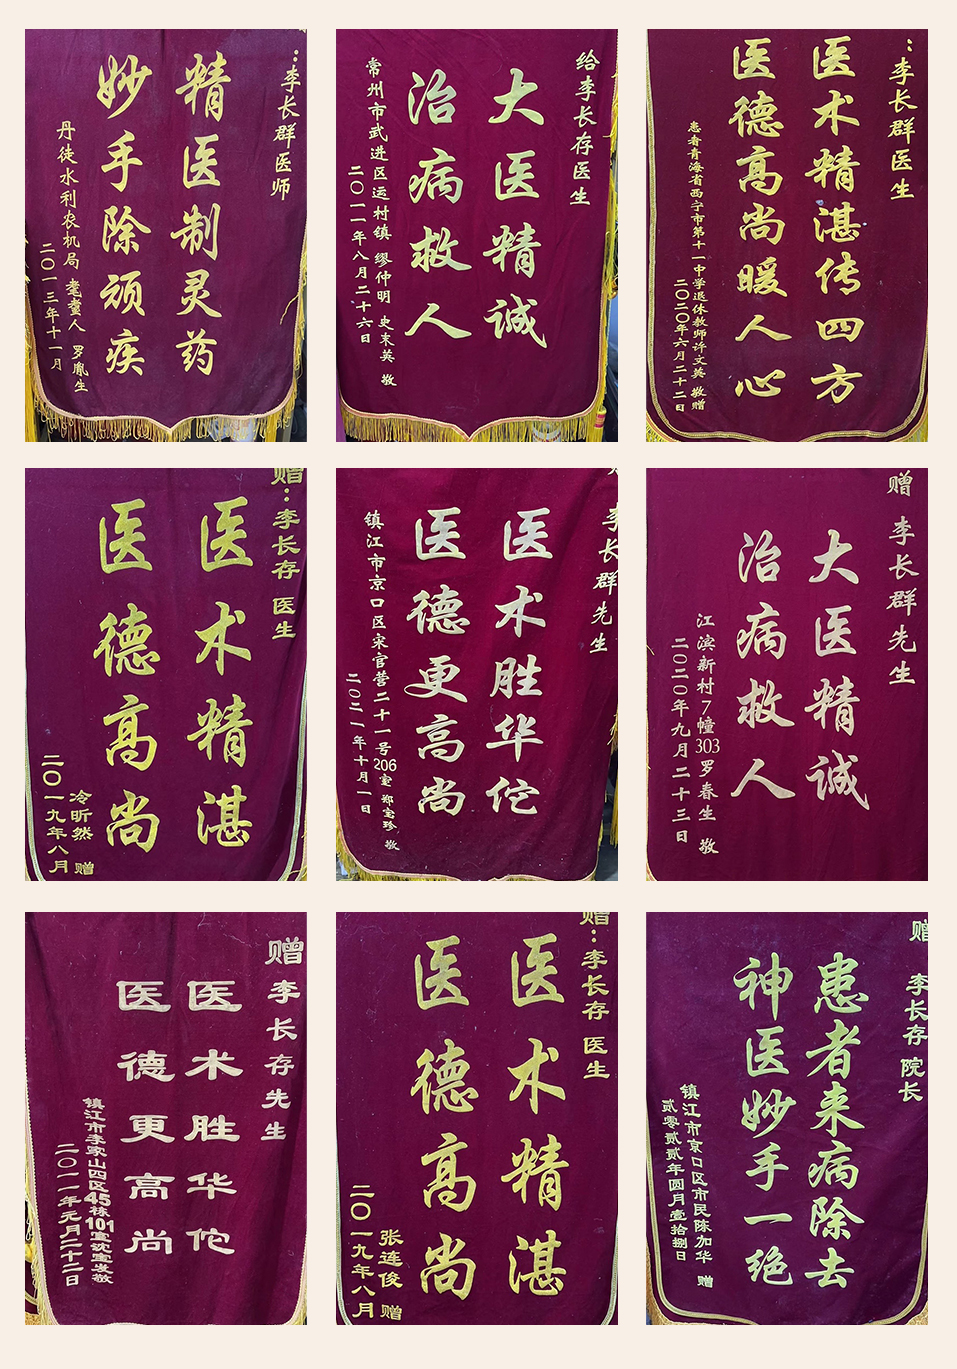 ：李长群医师
精医制灵药
妙手除顽疾
丹徒水利农机局 耄耋人 罗胤生
二〇一三年十一月
给李长存医生
大医精诚
治病救人
常州市武进区运村镇 缪仲明 史末英 敬
二〇一一年八月二十六日
：李长群医生
医术精湛传四方
医德高尚暖人心
患者青海省西宁市第十一中学退休教师许文英 敬赠
二〇二〇年六月二十二日
赠：李长存 医生
医术精湛
医德高尚
冷昕然 赠
二〇一九年八月
李长群先生
医术胜华佗
医德更高尚
镇江市京口区宋官营二十一号206室 郑宝珍 敬
二〇二一年十月一日
赠 李长群先生
大医精诚
治病救人
江滨新村7幢303罗春生 敬
二〇二〇年九月二十三日
赠李长存先生
医术胜华佗
医德更高尚
镇江市李家山四区45栋101室沈宝发敬
二〇一一年元月二十二日
赠：李长存 医生
医术精湛
医德高尚
张连俊 赠
二〇一九年八月
赠 李长存 院长
患者来病除去
神医妙手一绝
镇江市京口区市民陈加华 赠
贰零贰贰年圆月壹拾捌日